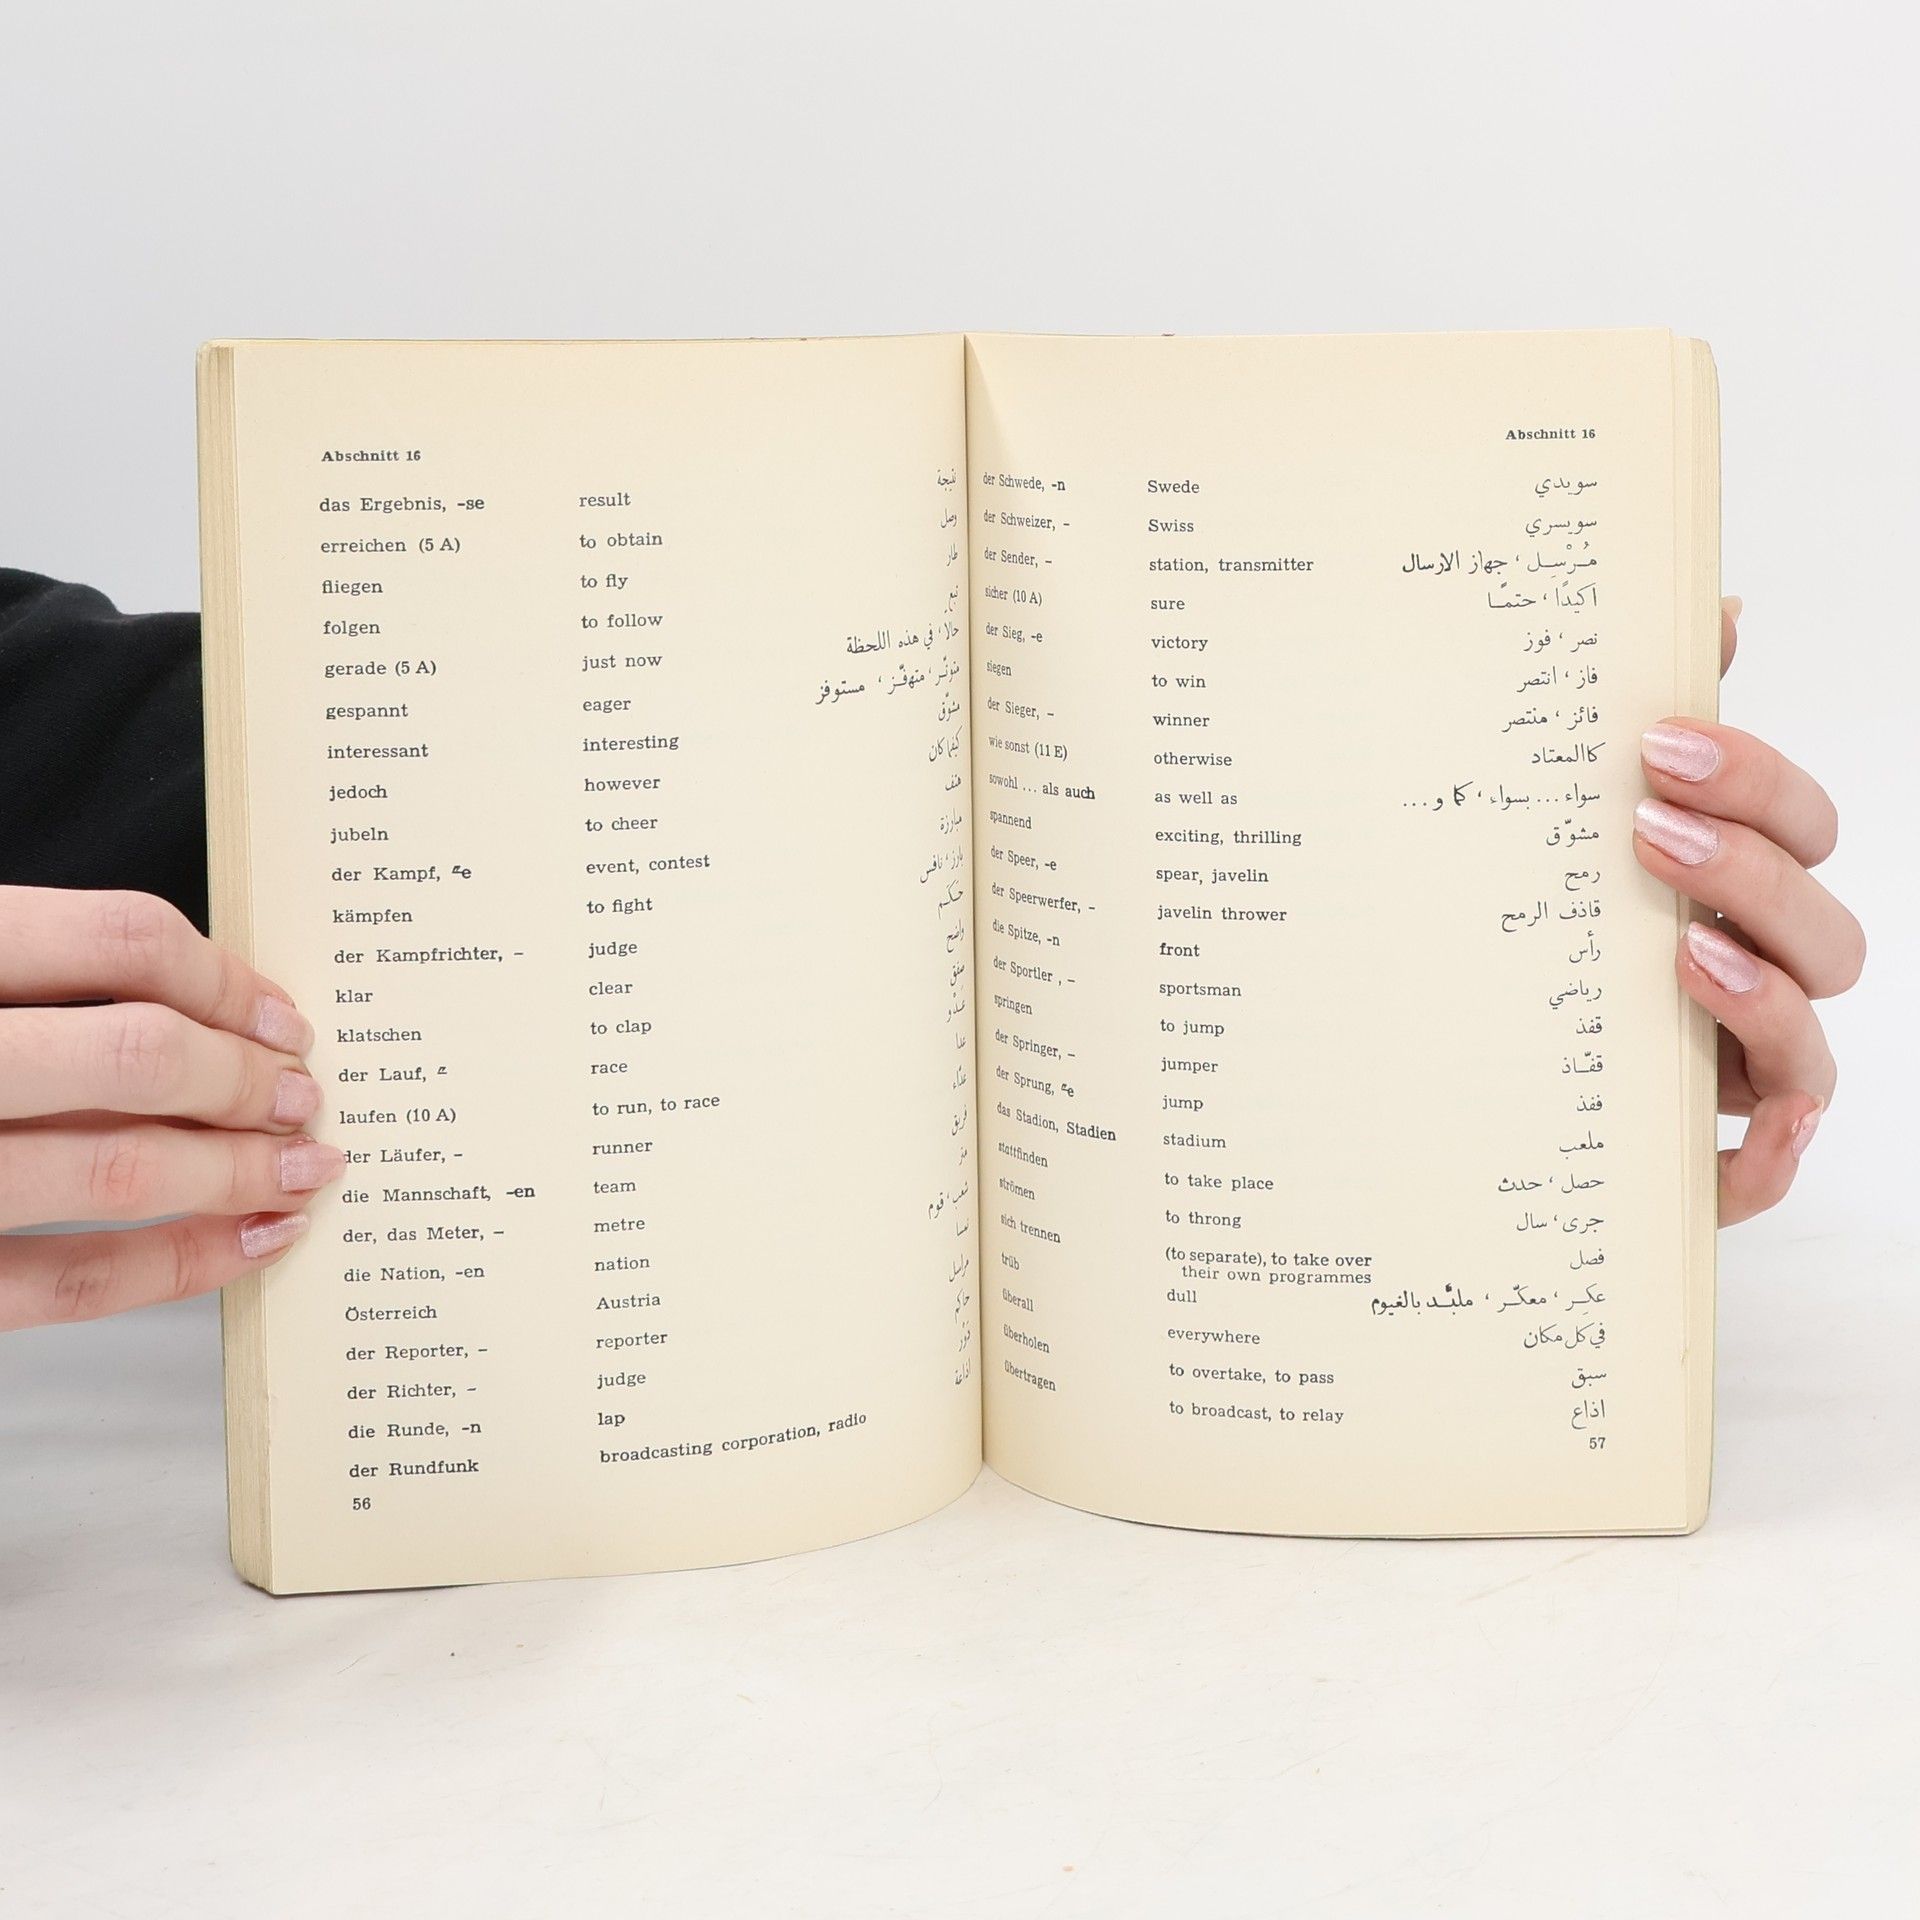 Abschnitt 16
das Ergebnis, -se result نتيجة
erreichen (5 A) to obtain وصل
fliegen to fly طار
folgen to follow تبع
gerade (5 A) just now حالاً، في هذه اللحظة
gespannt eager متوتّر، متهفّز، مستوفز
interessant interesting مشوّق
jedoch however كيفما كان
jubeln to cheer هتف
der Kampf, ⸚e event, contest مبارزة
kämpfen to fight بارز، نافس
der Kampfrichter, – judge حَكَم
klar clear واضح
klatschen to clap صفق
der Lauf, ⸚ race عَدْو
laufen (10 A) to run, to race عدا
der Läufer, – runner عدّاء
die Mannschaft, -en team فريق
der, das Meter, – metre متر
die Nation, -en nation شعب، قوم
Österreich Austria نمسا
der Reporter, – reporter مراسل
der Richter, – judge حاكم
die Runde, -n lap دَوْر
der Rundfunk broadcasting corporation, radio اذاعة
56
Abschnitt 16
der Schwede, -n Swede سويدي
der Schweizer, – Swiss سويسري
der Sender, – station, transmitter مُرْسِل، جهاز الارسال
sicher (10 A) sure اكيدًا، حتمًا
der Sieg, -e victory نصر، فوز
siegen to win فاز، انتصر
der Sieger, – winner فائز، منتصر
wie sonst (11 E) otherwise كاالمعتاد
sowohl ... als auch as well as سواء... بسواء، كما و...
spannend exciting, thrilling مشوّق
der Speer, -e spear, javelin رمح
der Speerwerfer, – javelin thrower قاذف الرمح
die Spitze, -n front رأس
der Sportler , – sportsman رياضي
springen to jump قفذ
der Springer, – jumper قفّاذ
der Sprung, ⸚e jump قفذ
das Stadion, Stadien stadium ملعب
stattfinden to take place حصل، حدث
strömen to throng جرى، سال
sich trennen (to separate), to take over فصل
their own programmes
trüb dull عكِر، معكّر، ملبّد بالغيوم
überall everywhere في كل مكان
überholen to overtake, to pass سبق
übertragen to broadcast, to relay اذاع
57